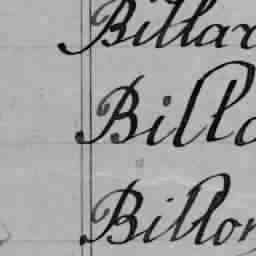 Billard
Billo
Billon